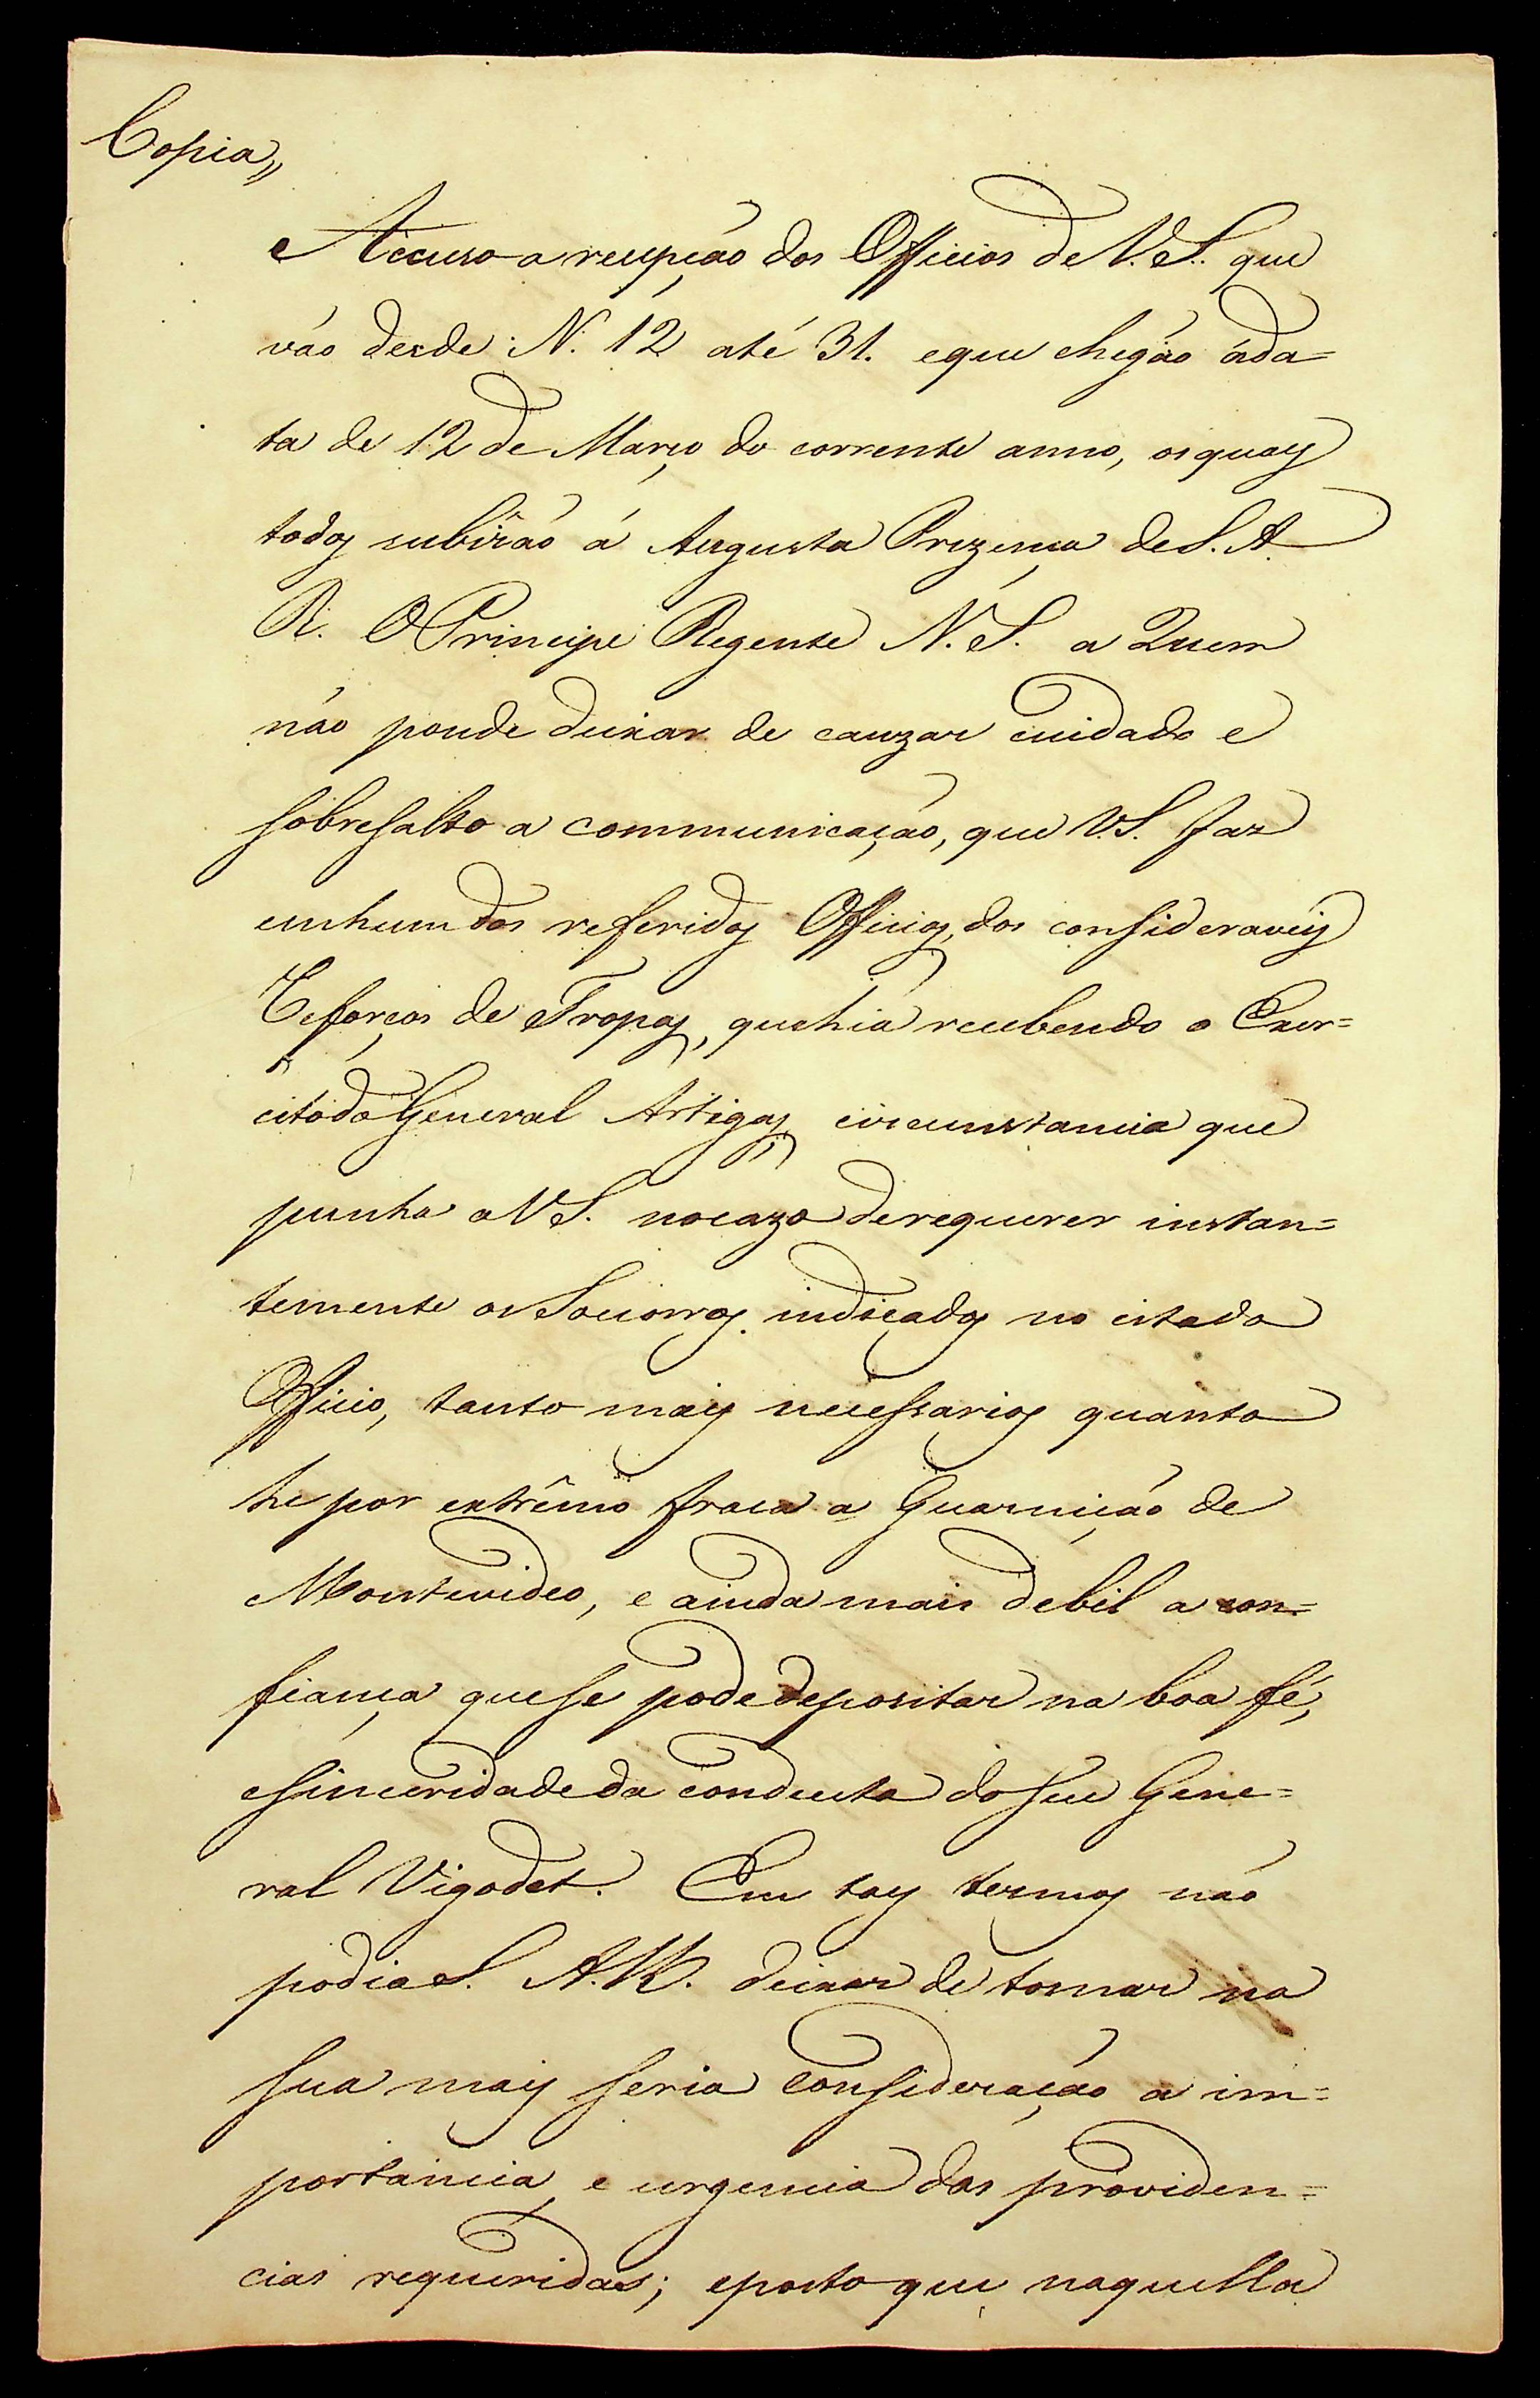 Copia,,
Accuso a recepção dos Officios de V. S. que
vão desde N. 12 até 31. e que chegão á da=
ta de 12 de Março do corrente anno, os quaes
todos subirão á Augusta Prezença de S. A.
R. O Principe Regente N. S. a Quem
não poude deixar de cauzar cuidado e
sobresalto a communicação, que V. S. faz
em hum dos referidos Officios, dos consideraveis
Reforços de Tropas, que hia recebendo o Exer=
cito do General Artigas, circunstancia que
punha a V. S. no cazo de requerer instan=
temente os Socorros indicados no citado
Officio, tanto mais necessarios quanto
he por extrêmo fraca a Guarnição de
Montevideo, e ainda mais debil a con=
fiança que se pode depositar na boa fé,
e sinceridade da conducta do seu Gene=
ral Vigodet. Em taes termos não
podia S. A. R. deixar de tomar na
sua mais seria consideração a im=
portancia, e urgencia das providen=
cias requeridas; e posto que naquella